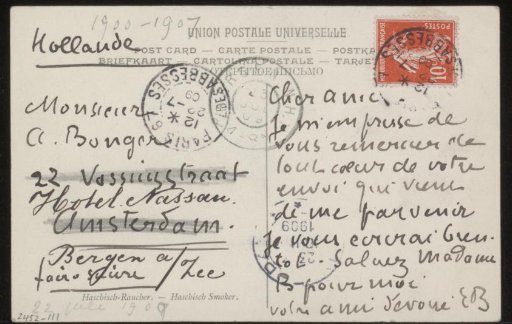 1900-1907
UNION POSTALE UNIVERSELLE
POST CARD — CARTE POSTALE — POSTKA
BRIEFKAART — CARTOLINA POSTALE — TARJE
Hollande
POSTES
10
PARIS
ABBESSES
1909
Monsieur
A. Bonger
22 Vossiusstraat
Hotel Nassau
Amsterdam.
Bergen a/
faire suivre /Zee
Haschisch-Raucher. — Haschisch Smoker.
2452-111
22 1909
Cher ami
Je m'empresse de
vous remercier de
tout cœur de votre
envoi qui vient
de me parvenir
Je vous écrirai bien-
tôt. Saluez Madame
B. pour moi
votre ami dévoué EB